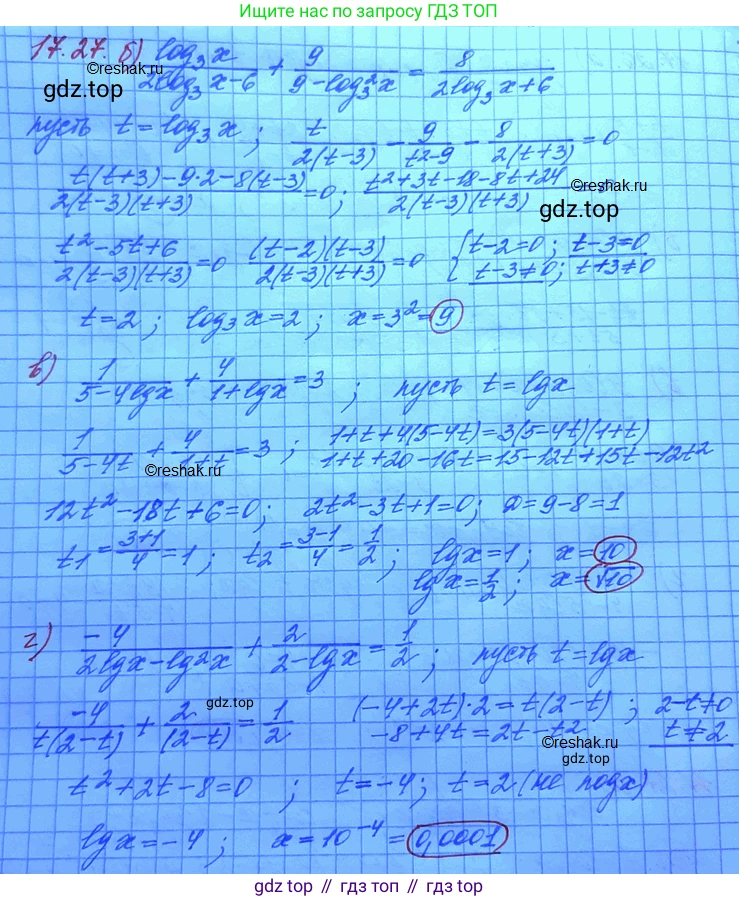 Ищите нас по запросу ГДЗ ТОП
17.27. б) log₃x/(2log₃x-6) + 9/(9-log₃²x) = 8/(2log₃x+6)
©reshak.ru
gdz.top
пусть t=log₃x; t/(2(t-3)) - 9/(t²-9) - 8/(2(t+3)) = 0
(t(t+3)-9·2-8(t-3))/(2(t-3)(t+3)) = 0; (t²+3t-18-8t+24)/(2(t-3)(t+3))
©reshak.ru
gdz.top
(t²-5t+6)/(2(t-3)(t+3)) = 0 ((t-2)(t-3))/(2(t-3)(t+3)) = 0 { t-2=0; t-3=0
t-3≠0; t+3≠0
t=2; log₃x=2; x=3²=9
в) 1/(5-4lgx) + 4/(1+lgx) = 3; пусть t=lgx
1/(5-4t) + 4/(1+t) = 3; 1+t+4(5-4t)=3(5-4t)(1+t)
1+t+20-16t=15-12t+15t-12t²
©reshak.ru
12t²-18t+6=0; 2t²-3t+1=0; D=9-8=1
t₁=(3+1)/4=1; t₂=(3-1)/4=1/2; lgx=1; x=10
lgx=1/2; x=√10
г) -4/(2lgx-lg²x) + 2/(2-lgx) = 1/2; пусть t=lgx
gdz.top
-4/(t(2-t)) + 2/(2-t) = 1/2 (-4+2t)·2=t(2-t); 2-t≠0
-8+4t=2t-t² t≠2
©reshak.ru
t²+2t-8=0; t=-4; t=2 (не подх)
lgx=-4; x=10⁻⁴=0,0001
gdz.top // гдз топ // gdz.top